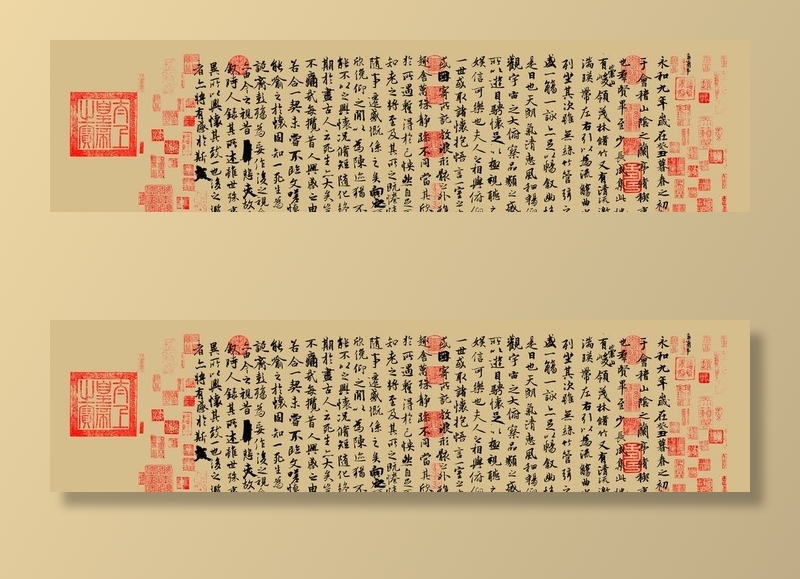 永和九年歲在癸丑暮春之初
于會稽山陰之蘭亭脩稧事
也群賢畢至少長咸集此地
有崇山峻領茂林脩竹又有清流激
湍暎帶左右引以為流觴曲
列坐其次雖無絲竹管弦之
盛一觴一詠亦足以暢敘幽情
是日也天朗氣清惠風和暢仰
觀宇宙之大俯察品類之盛
所以遊目騁懷足以極視聽之
娛信可樂也夫人之相與俯仰
一世或取諸懷抱悟言一室之
或因寄所託放浪形骸之外雖
趣舍萬殊靜躁不同當其欣
於所遇暫得於己怏然自足
知老之將至及其所之既惓情
隨事遷感慨係之矣向之
欣俛仰之閒以為陳迹猶不
能不以之興懷況脩短隨化終
期於盡古人云死生亦大矣豈
不痛哉每攬昔人興感之由
若合一契未嘗不臨文嗟悼
能喻之於懷固知一死生為
誕齊彭殤為妄作後之視今
亦由今之視昔悲夫故
敘時人錄其所述雖世殊事
異所以興懷其致一也後之攬
者亦將有感於斯文
太上皇帝之寶
永和九年歲在癸丑暮春之初
于會稽山陰之蘭亭脩稧事
也群賢畢至少長咸集此地
有崇山峻領茂林脩竹又有清流激
湍暎帶左右引以為流觴曲
列坐其次雖無絲竹管弦之
盛一觴一詠亦足以暢敘幽情
是日也天朗氣清惠風和暢仰
觀宇宙之大俯察品類之盛
所以遊目騁懷足以極視聽之
娛信可樂也夫人之相與俯仰
一世或取諸懷抱悟言一室之
或因寄所託放浪形骸之外雖
趣舍萬殊靜躁不同當其欣
於所遇暫得於己怏然自足
知老之將至及其所之既惓情
隨事遷感慨係之矣向之
欣俛仰之閒以為陳迹猶不
能不以之興懷況脩短隨化終
期於盡古人云死生亦大矣豈
不痛哉每攬昔人興感之由
若合一契未嘗不臨文嗟悼
能喻之於懷固知一死生為
誕齊彭殤為妄作後之視今
亦由今之視昔悲夫故
敘時人錄其所述雖世殊事
異所以興懷其致一也後之攬
者亦將有感於斯文
太上皇帝之寶